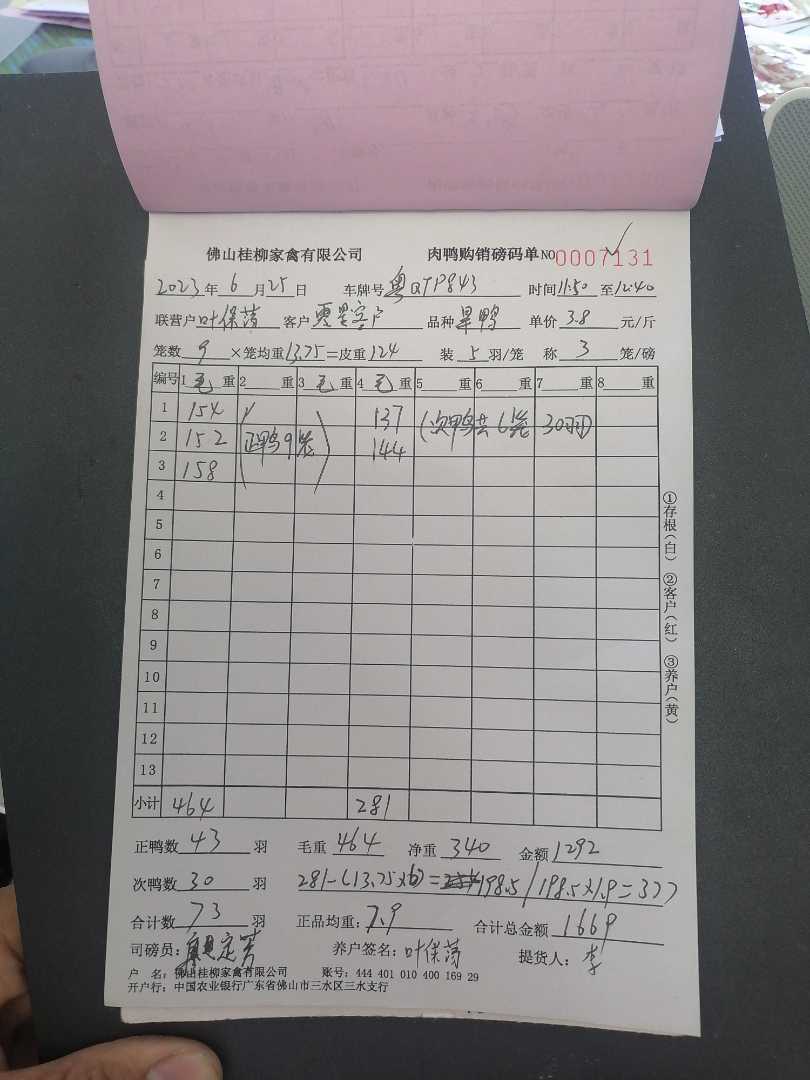 佛山桂柳家禽有限公司 肉鸭购销磅码单 NO 0007131
2023年6月25日 车牌号 粤QTP843 时间11:50至12:40
联营户叶保荡 客户零星客户 品种旱鸭 单价3.8元/斤
笼数9×笼均重13.75=皮重124 装5羽/笼 称3笼/磅
编号 1毛重 2重 3毛重 4毛重 5重 6重 7重 8重
1 154 137 (次鸭共6笼 30羽)
2 152 (正鸭9笼) 144
3 158
4
5
6
7
8
9
10
11
12
13
小计 464 281
正鸭数43羽 毛重464 净重340 金额1292
次鸭数30羽 281-(13.75×6)=198.5/198.5×1.9=377
合计数73羽 正品均重:7.9 合计总金额1669
司磅员: 养户签名:叶保荡 提货人:李
户 名:佛山桂柳家禽有限公司 账号:444 401 010 400 169 29
开户行:中国农业银行广东省佛山市三水区三水支行
①存根(白) ②客户(红) ③养户(黄)